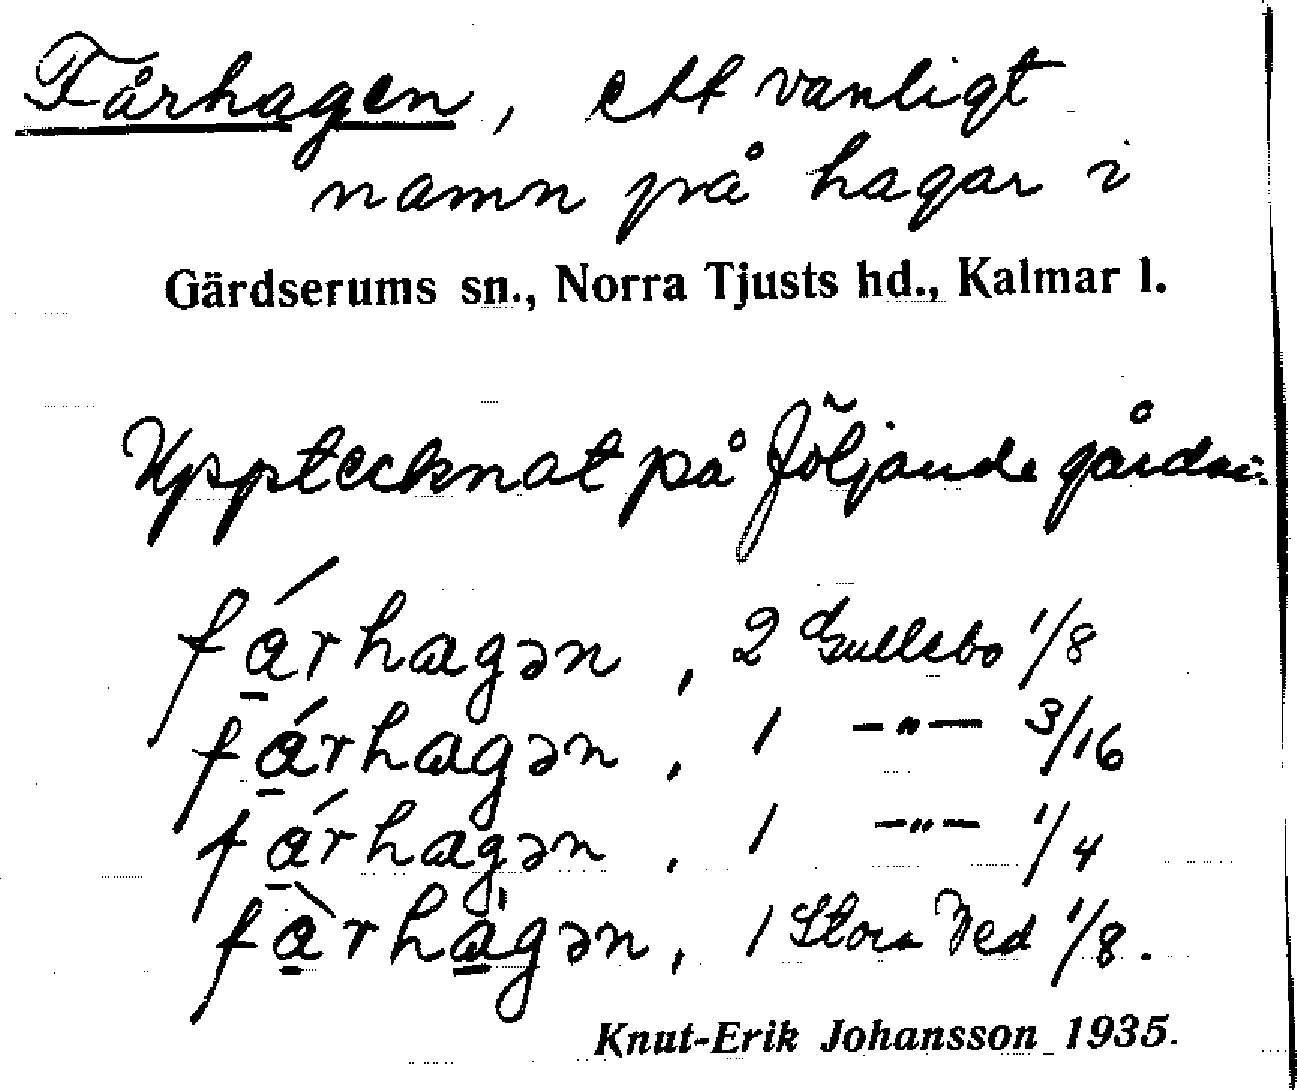 Fårhagen, ett vanligt
namn på hagar i
Gärdserums sn., Norra Tjusts hd., Kalmar l.
Upptecknat på följande gårdar:
fárhagən, 2 Gullebo 1/8
fárhagən, 1 -"- 3/16
fárhagən, 1 -"- 1/4
fàrhágən, 1 Stora Ved 1/8.
Knut-Erik Johansson 1935.